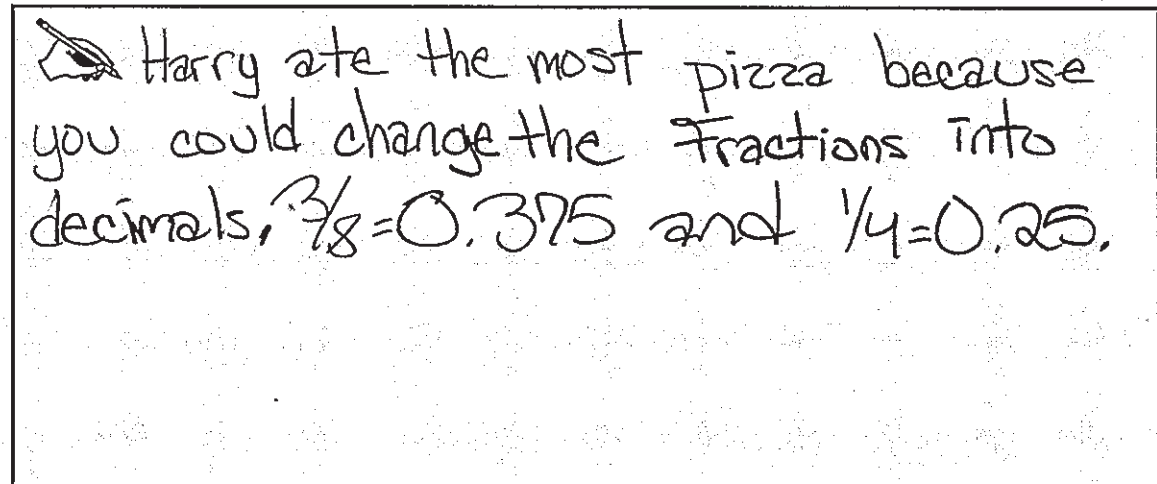 Harry ate the most pizza because
you could change the fractions into
decimals, 3/8=0.375 and 1/4=0.25.